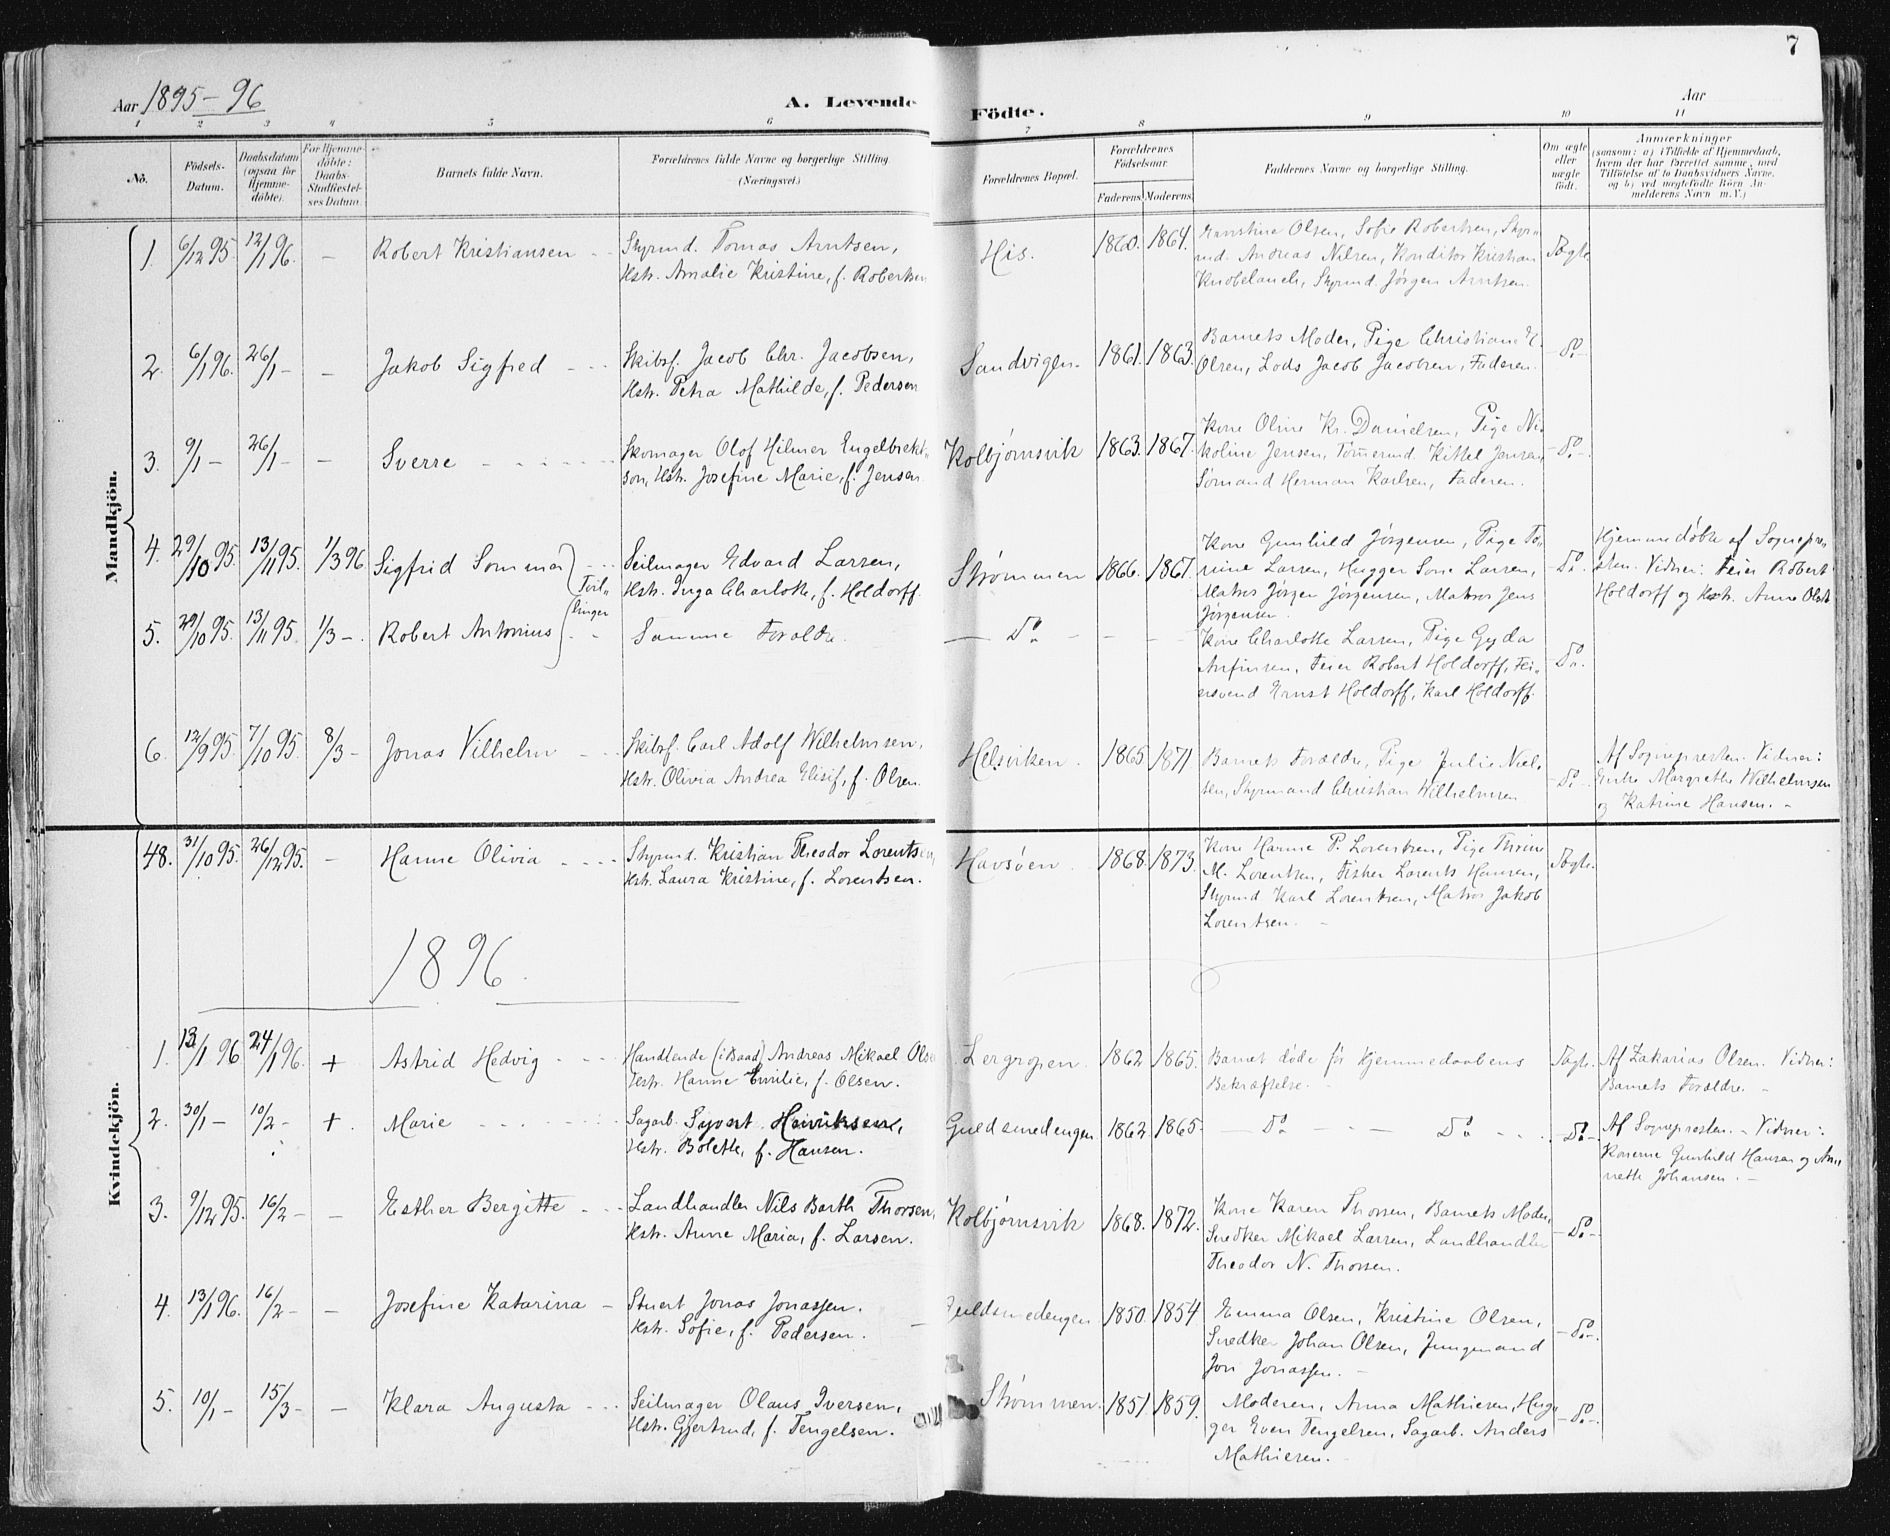 7
Aar 1895-96
A. Levende Födte.
Aar
1 2 3 4 5 6 7 8 9 10 11
No.
Födsels-
Datum.
Daabsdatum
(ogsaa for
Hjemme-
döbte).
For Hjemme-
döbte:
Daabs-
Stadfæstel-
ses Datum.
Barnets fulde Navn.
Forældrenes fulde Navne og borgerlige Stilling
(Næringsvei.)
Forældrenes Bopæl.
Forældrenes
Födselsaar.
Faderens. Moderens.
Faddernes Navne og borgerlige Stilling.
Om ægte
eller
uægte
födt.
Anmærkninger
(saasom: a) i Tilfælde af Hjemmedaab,
hvem der har forrettet samme, med
Tilföielse af to Daabsvidners Navne,
og b) ved uægtefödte Börn An-
melderens Navn m. V.)
Mandkjön.
1. 6/12 95 12/1 96. - Robert Kristiansen
Styrmd. Tomas Arntsen,
Hstr. Amalie Kristine, f. Robertsen
His. 1860. 1864.
Olsen, Sofie Robertsen, Styr-
md. Andreas Nilsen, Konditor Kristian
Knobelauch, Styrmd. Jørgen Arntsen.
Ægte.
2. 6/1 96. 26/1 - - Jakob Sigfred
Skibsf. Jacob Chr. Jacobsen,
Hstr. Petra Mathilde, f. Pedersen
Sandvigen. 1861. 1863.
Barnets Moder, Pige Christiane E.
Olsen, Lods Jacob Jacobsen, Faderen.
- Do -
3. 9/1 - 26/1 - - Sverre
Skomager Olof Hilmer Engelbrekt-
son, Hstr. Josefine Marie, f. Jensen.
Kolbjørnsvik 1863. 1867.
Kone Oline Kr. Danielsen, Pige Ni-
koline Jensen, Tømermd. Kittel Jensen,
Sømand Herman Karlsen, Faderen.
- Do -
4. 29/10 95. 13/11 95. 1/3 96. Sigfrid Sommar
Tvil-
linger
Seilmager Edvard Larsen,
Hstr. Inga Charlotte, f. Holdorff.
Strømmen 1866. 1867.
Kone Gunhild Jørgensen, Pige To-
mine Larsen, Hugger Sone Larsen,
Matros Jørgen Jørgensen, Matros Jens
Jørgensen.
Do
Hjemmedøbte af Sognepre-
sten. Vidner: Feier Robert
Holdorff og Hstr. Anne
5. 29/10 95. 13/11 95. 1/3 -. Robert Antonius
Samme Foræld
- Do - - -
Kone Charlotte Larsen, Pige Gyda
Anfinsen, Feier Robert Holdorff, Fei-
ersvend Ernst Holdorff, Karl Holdorff.
Do.
6. 12/9 95. 7/10 95. 8/3 - Jonas Vilhelm
Skibsf. Carl Adolf Wilhelmsen,
Hstr. Olivia Andrea Elisif, f. Olsen.
Helsviken. 1865 1871
Barnets Forældre, Pige Julie Niel-
sen, Styrmand Christian Wilhelmsen
- Do -
Af Sognepresten. Vidner:
Enke Margrethe Wilhelmsen
og Katrine Hansen. -
Kvindekjön.
48. 31/10 95. 26/12 95. - Hanne Olivia
Styrmd. Kristian Theodor Lorentsen,
Hstr. Laura Kristine, f. Lorentsen.
Havsøen 1868. 1873.
Kone Hanne P. Lorentsen, Pige Thrine
M. Lorentsen, Fisker Lorents Hansen,
Styrmd Karl Lorentsen, Matros Jakob
Lorentsen. -
Ægte.
1896.
1. 13/1 96 24/1 96. + Astrid Hedvig
Handlende (i Baad) Andreas Mikael Olsen
Hstr. Hanne Emilie, f. Olsen.
Lergropen. 1862 1865.
Barnet døde før Hjemmedaabens
Bekræftelse. -
Ægte.
Af Zakarias Olsen. Vidner:
Barnets Forældre. -
2. 30/1 - 10/2 - +. Marie
Sagarb. Syvert Henriksen,
Hstr. Bolette, f. Hansen.
Guldsmedengen 1862. 1865.
- Do - - Do -
- Do -
Af Sognepresten. - Vidner:
Konerne Gunhild Hansen og An-
nette Johansen. -
3. 9/12 95. 16/2 - - Esther Bergitte
Landhandler Nils Barth Thorsen,
Hstr. Anne Maria, f. Larsen.
Kolbjørnsvik 1868. 1872.
Kone Karen Thorsen, Barnets Moder,
Snedker Mikael Larsen, Landhandler
Theodor N. Thorsen.
- Do -
4. 13/1 96. 16/2 - - Josefine Katarina -
Stuert Jonas Jonassen.
Hstr. Sofie, f. Pedersen.
Guldsmedengen 1850. 1854
Emma Olsen, Kristine Olsen,
Snedker Johan Olsen, Jungmand
Jon Jonassen. -
- Do -
5. 10/1 - 15/3 - - Klara Augusta
Seilmager Olaus Iversen,
Hstr. Gjertrud, f. Tengelsen.
Strømmen. 1851. 1859.
Moderen, Anna Mathisen, Hug-
ger Even Tengelsen, Sagarb. Anders
Mathisen. -
- Do -